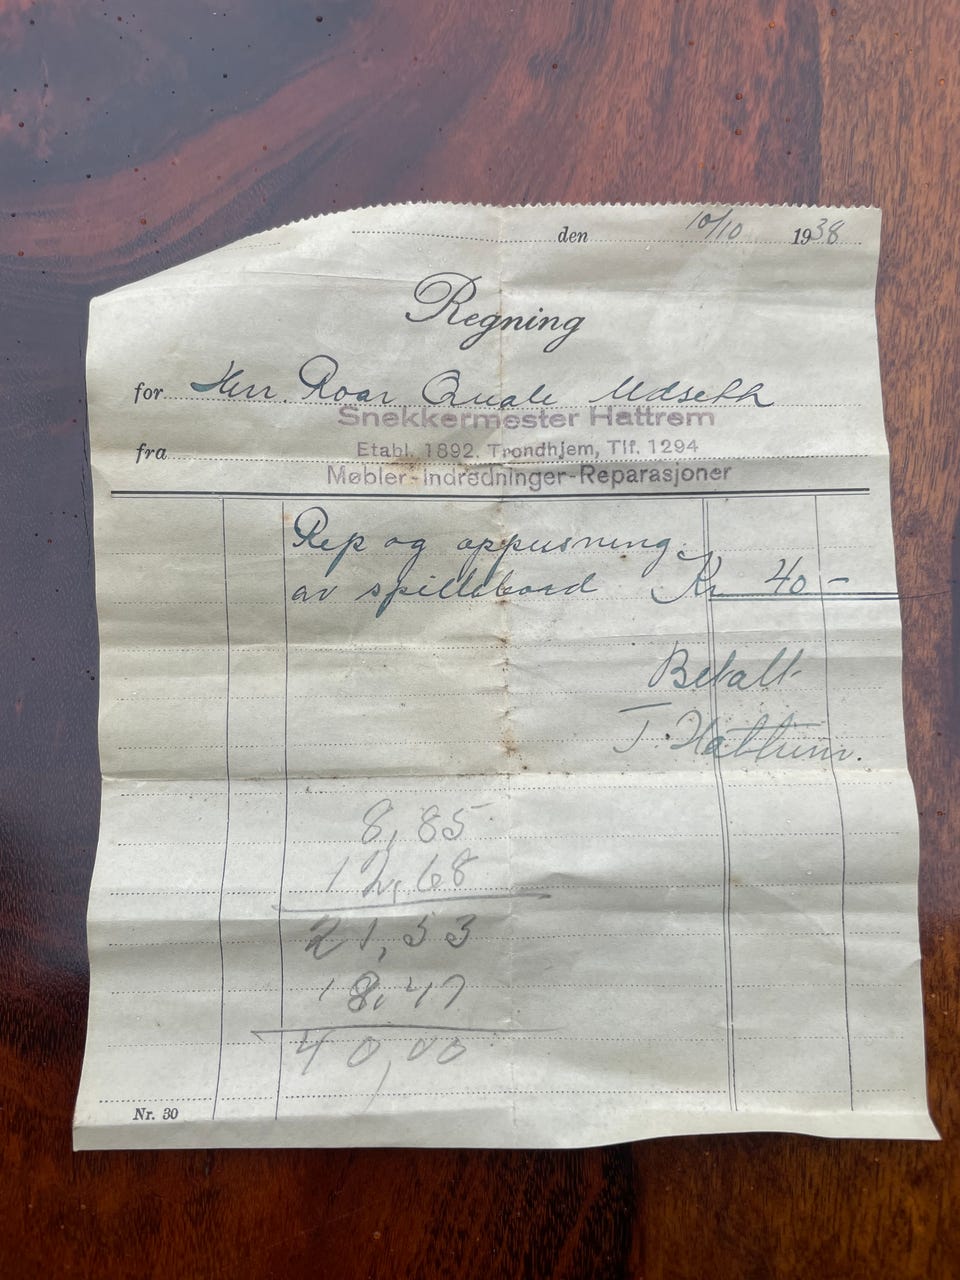 den 10/10 1938
Regning
for Herr. Roar Quale Udseth
Snekkermester Hattrem
fra Etabl. 1892. Trondhjem, Tlf. 1294
Møbler-Indredninger-Reparasjoner
Rep og oppusning
av spillebord Kr 40 -
Betalt
T. Hattrem.
8,85
12,68
21,53
18,47
40,00
Nr. 30